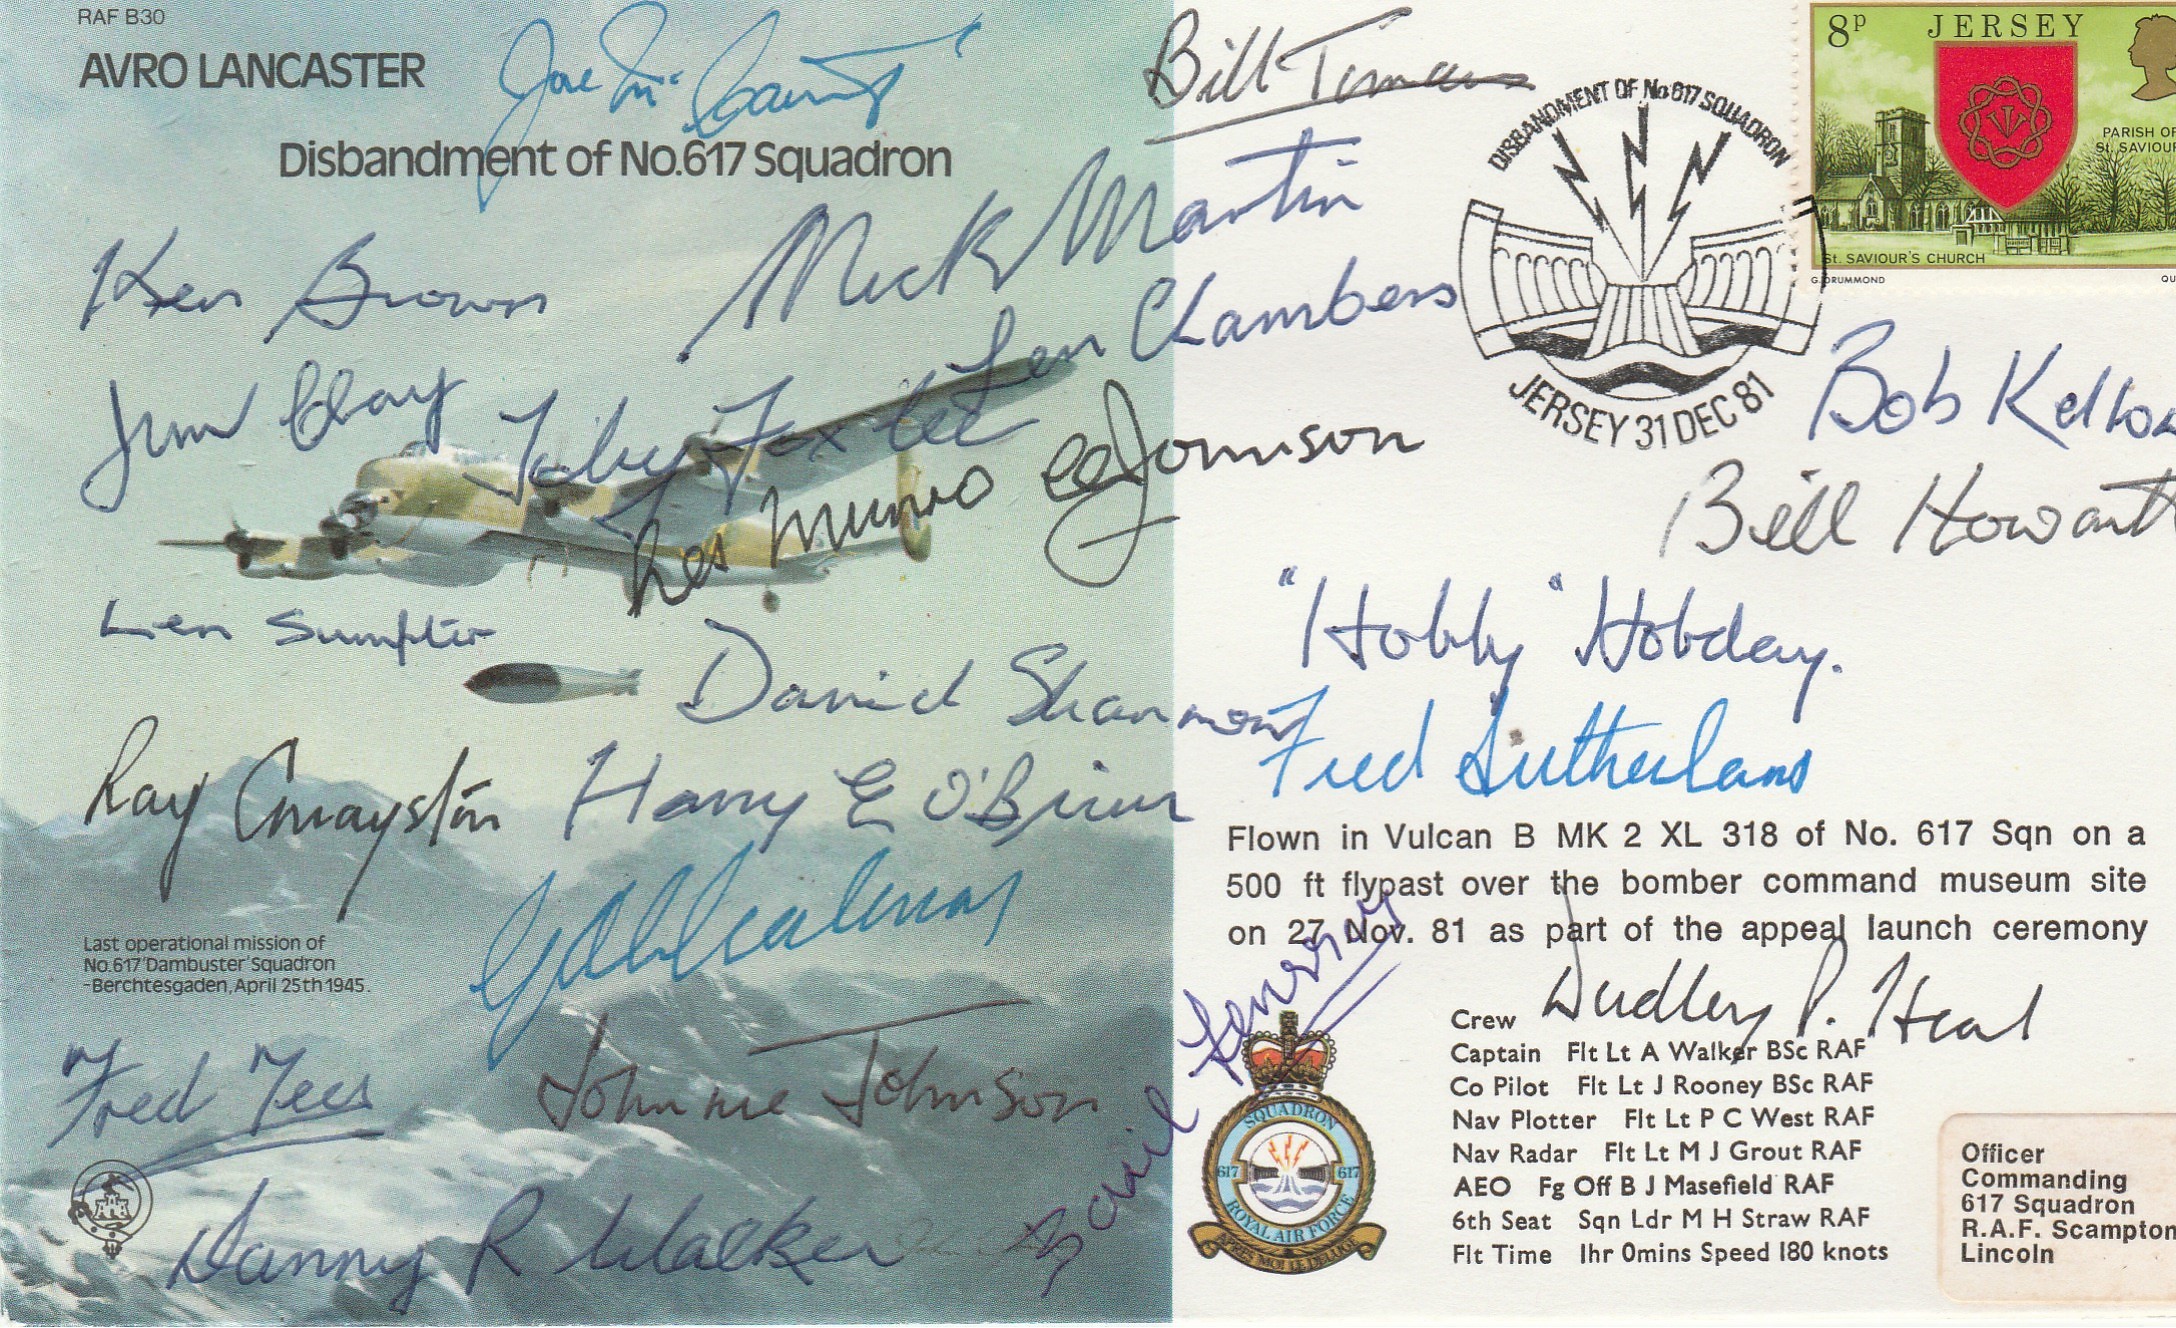 RAF B30
AVRO LANCASTER
Disbandment of No.617 Squadron
Joe McCarthy
Bill Townsend
Ken Brown
Mick Martin
Len Chambers
Jim Clay
Toby Foxlee
Les Munro
Johnson
Len Sumpter
David Shannon
Ray Grayston
Harry E O'Brien
Last operational mission of
No.617 'Dambuster' Squadron
-Berchtesgaden, April 25th 1945.
Fred Tees
Johnnie Johnson
Danny R Walker
Basil Feneron
DISBANDMENT OF No 617 SQUADRON
JERSEY 31 DEC 81
8p JERSEY
PARISH OF
St. SAVIOUR
St. SAVIOUR'S CHURCH
G. DRUMMOND
QU
Bob Kellow
Bill Howarth
"Hobby" Hobday.
Fred Sutherland
Flown in Vulcan B MK 2 XL 318 of No. 617 Sqn on a
500 ft flypast over the bomber command museum site
on 27 Nov. 81 as part of the appeal launch ceremony
Dudley P. Heal
Crew
Captain Flt Lt A Walker BSc RAF
Co Pilot Flt Lt J Rooney BSc RAF
Nav Plotter Flt Lt P C West RAF
Nav Radar Flt Lt M J Grout RAF
AEO Fg Off B J Masefield RAF
6th Seat Sqn Ldr M H Straw RAF
Flt Time 1hr 0mins Speed 180 knots
SQUADRON
617 617
ROYAL AIR FORCE
APRES MOI LE DELUGE
Officer
Commanding
617 Squadron
R.A.F. Scampton
Lincoln